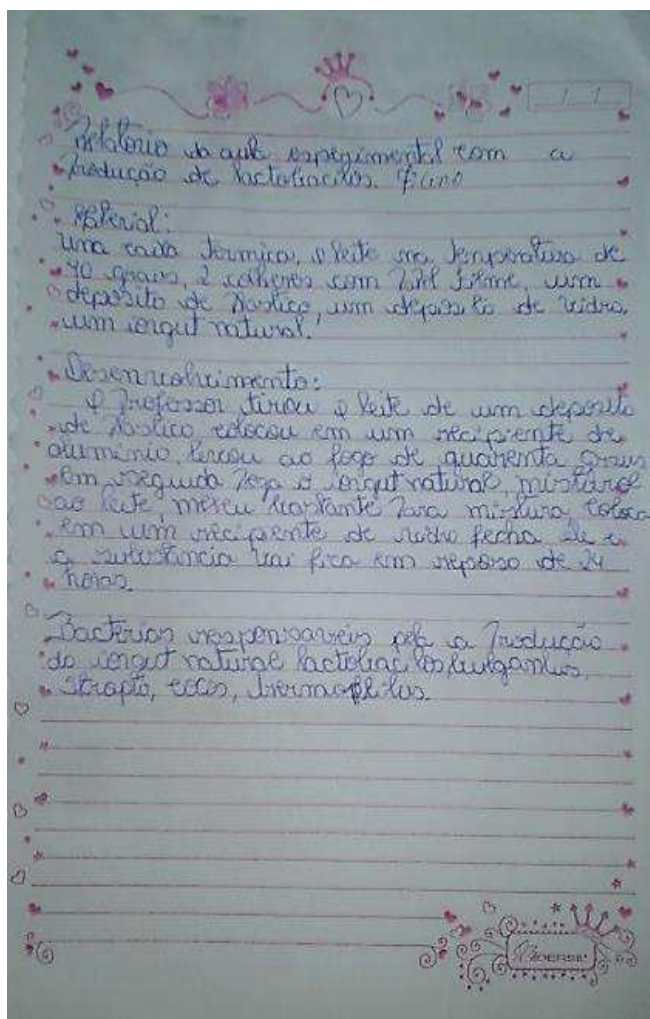 Relatorio da aula expegimental com a
Produção de lactobacilos.
Material:
Uma caixa termica, o leite na temperatura de
40 graus, 2 colheres com Papel filme, um
deposito de Plastico, um deposito de vidro,
um iorgut natural.
Desenvolvimento:
O Professor tirou o leite de um deposito
de Plastico colocou em um recipiente de
aluminio, levou ao fogo de quarenta graus
em seguida Pega o iorgut natural, misturol
ao leite, mexeu bastante Para mistura, coloca
em um recipiente de vidro fecha ele e
a substância vai fica em reposo de 24
horas.
Bactérias responsaveis pela a Produção
do iorgut natural lactobacilos bulgarilus,
Strapto, cocos, termophilus.